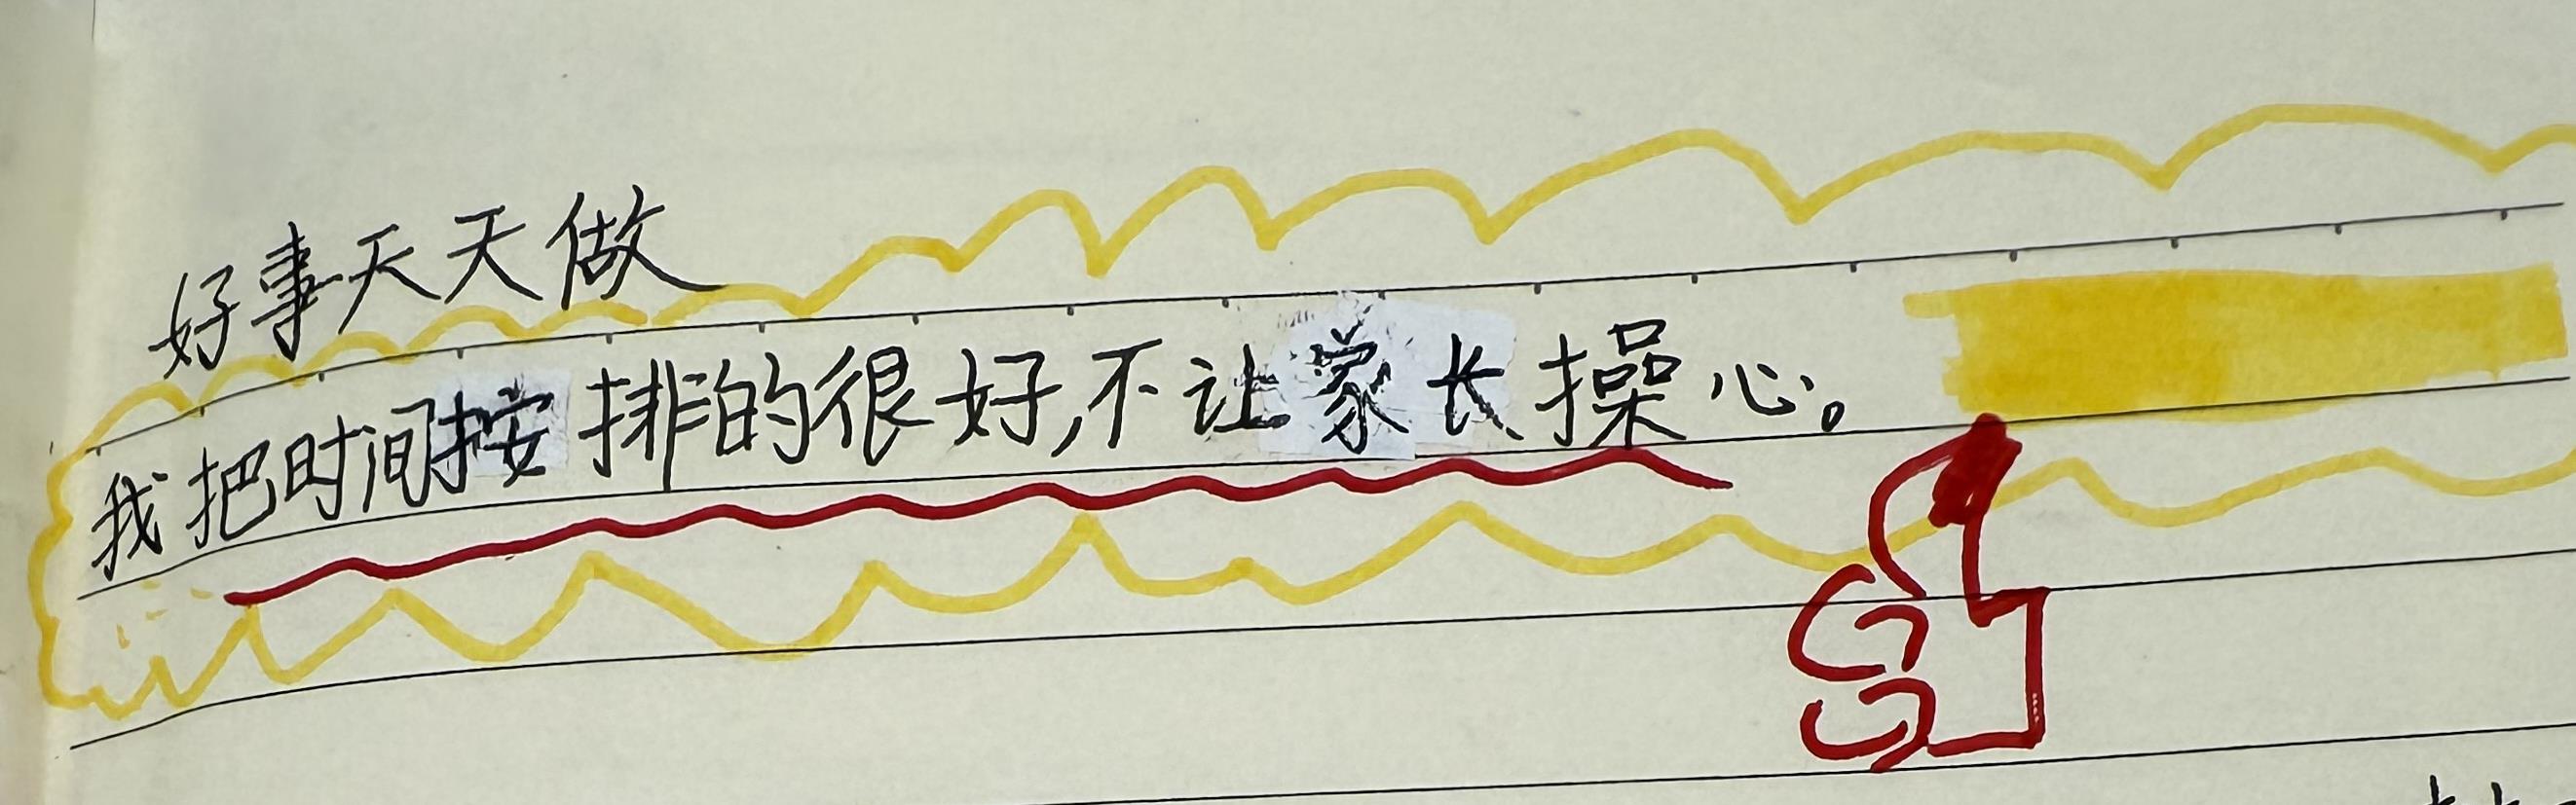 好事天天做
我把时间按排的很好,不让家长操心。